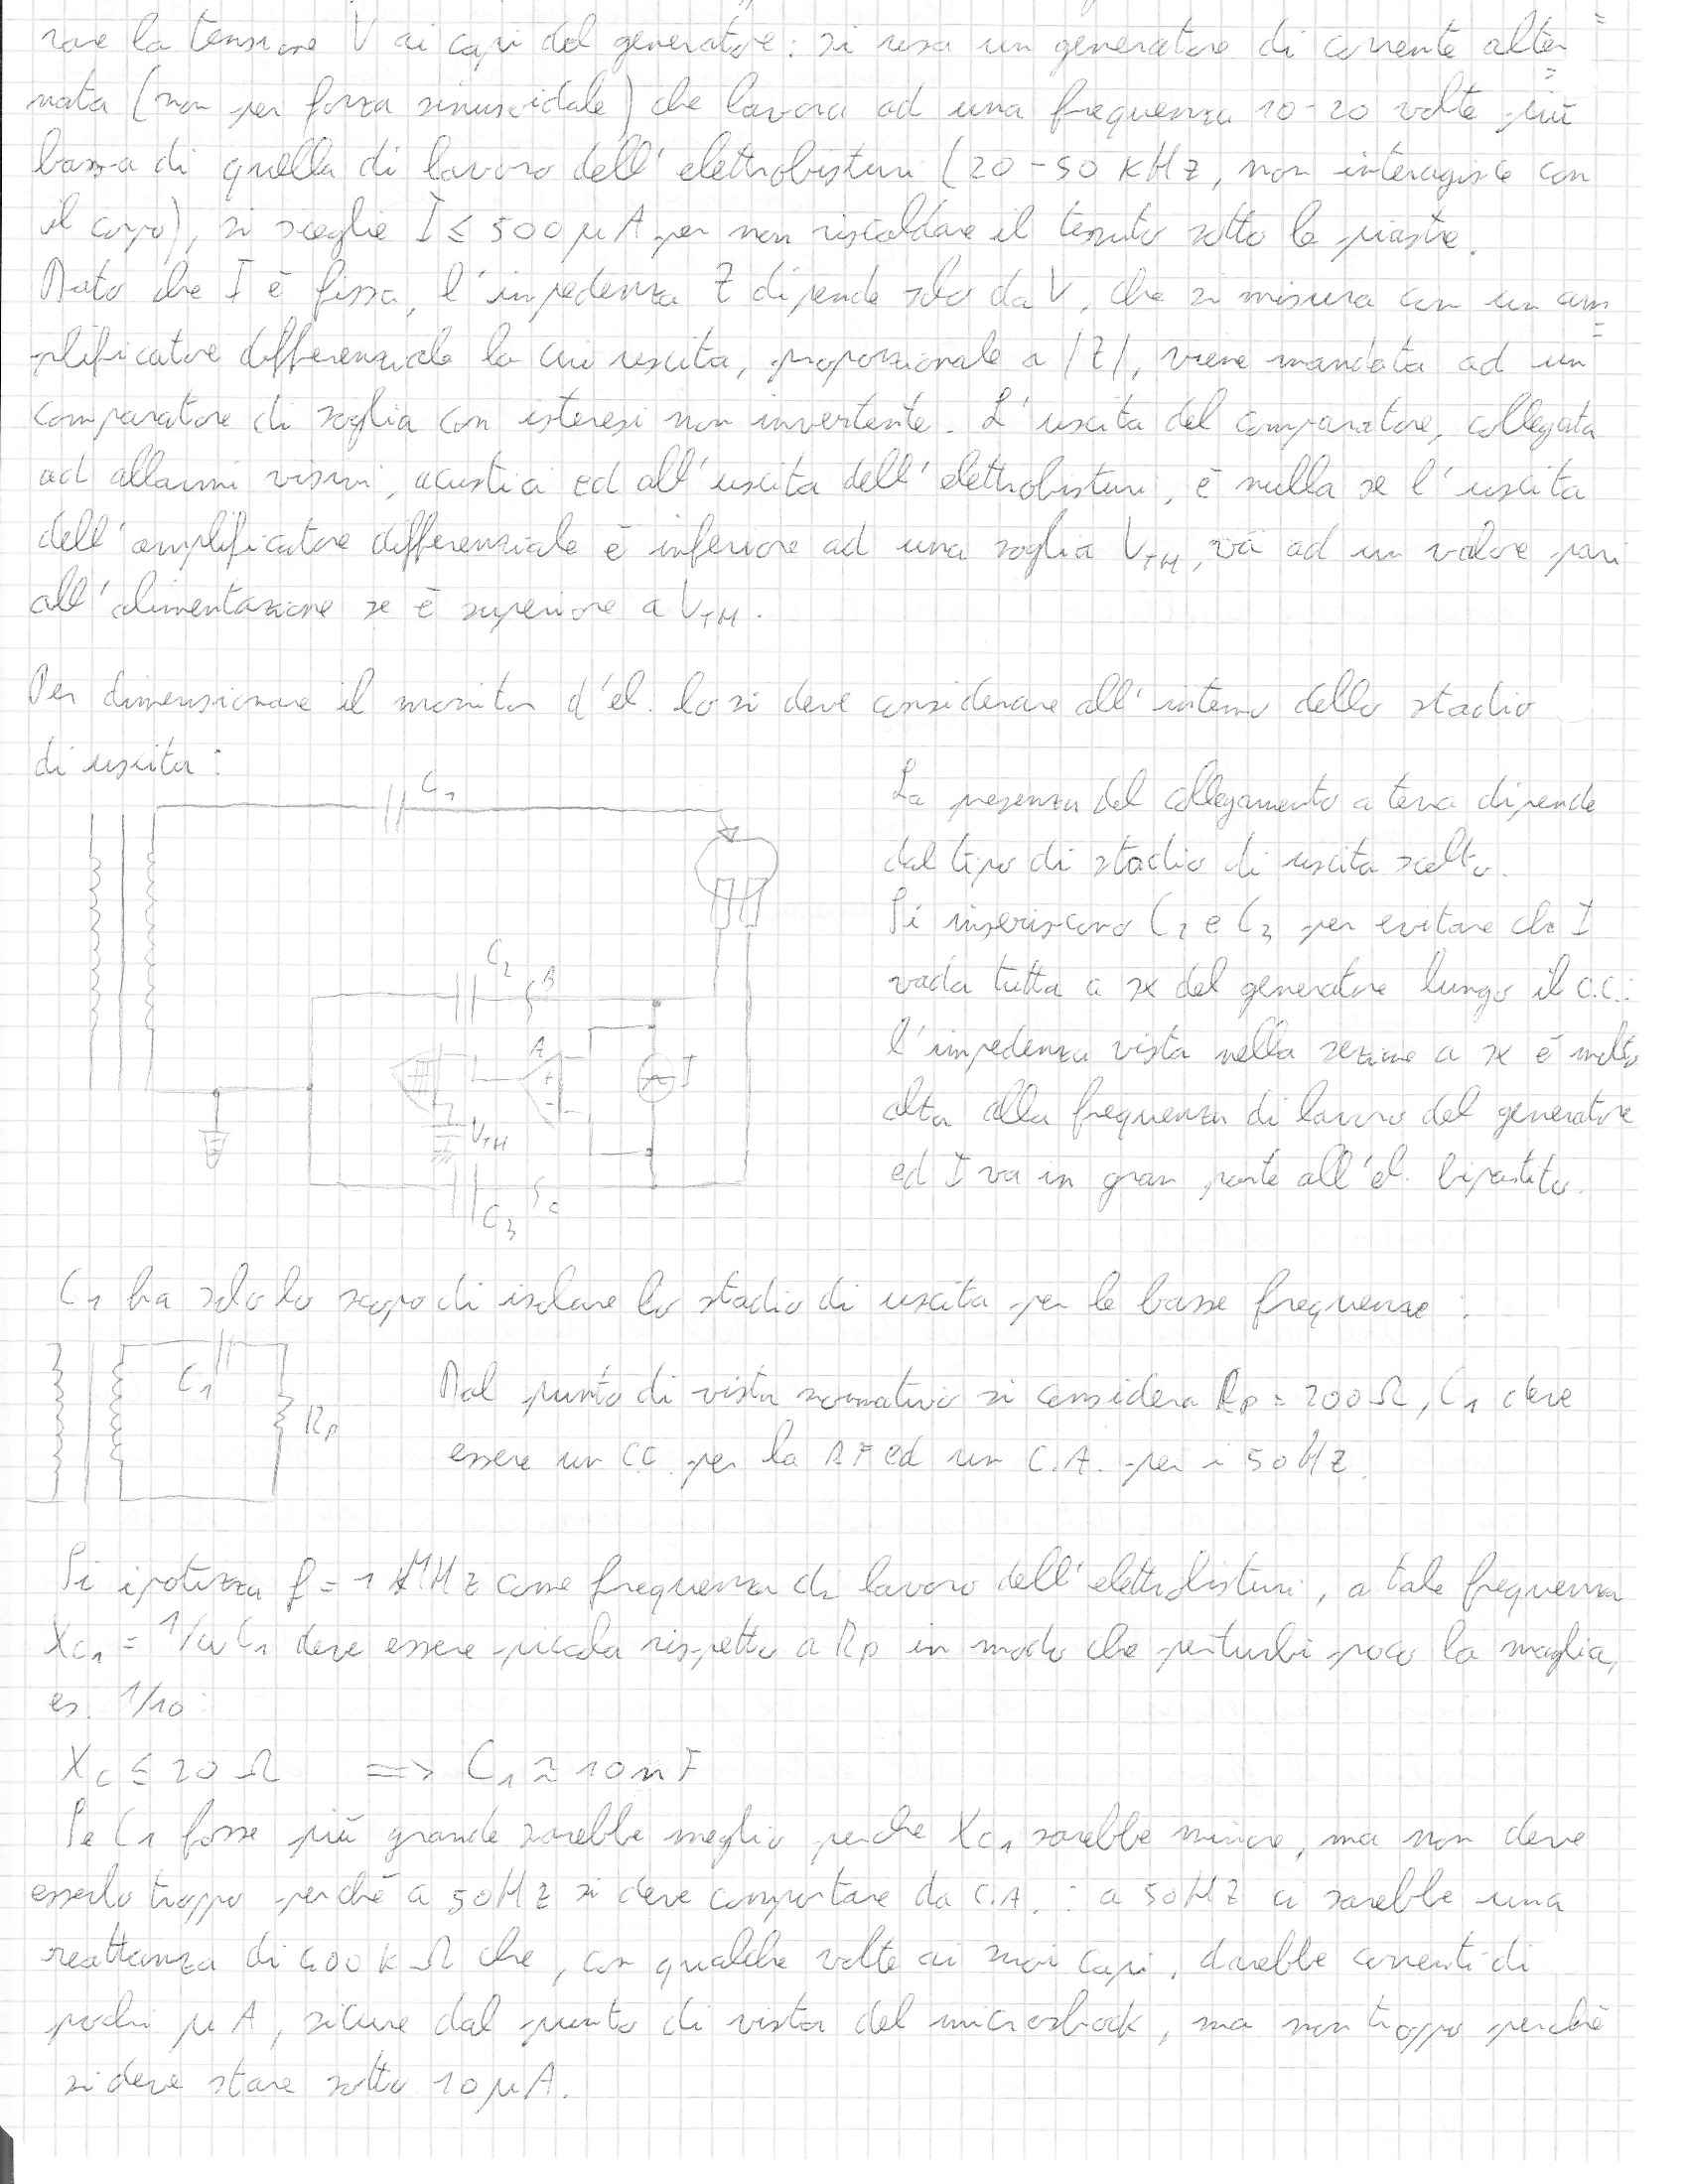 rare la tensione V ai capi del generatore: si usa un generatore di corrente alter=
nata (non per forza sinusoidale) che lavora ad una frequenza 10-20 volte più
bassa di quella di lavoro dell'elettrobisturi (20-50 KHz, non interagisce con
il corpo), si sceglie I ≤ 500 μA per non riscaldare il tessuto sotto le piastre.
Dato che I è fissa, l'impedenza Z dipende solo da V, che si misura con un am=
plificatore differenziale la cui uscita, proporzionale a |Z|, viene mandata ad un
comparatore di soglia con isteresi non invertente. L'uscita del comparatore, collegata
ad allarmi visivi, acustici ed all'uscita dell'elettrobisturi, è nulla se l'uscita
dell'amplificatore differenziale è inferiore ad una soglia VTH, va ad un valore pari
all'alimentazione se è superiore a VTH.
Per dimensionare il monitor d'el. lo si deve considerare all'interno dello stadio
di uscita:
C1
La presenza del collegamento a terra dipende
dal tipo di stadio di uscita scelto.
Si inseriscono C2 e C3 per evitare che I
vada tutta a sx del generatore lungo il C.C.:
l'impedenza vista nella sezione a sx è molto
alta alla frequenza di lavoro del generatore
ed I va in gran parte all'el. bipartito.
C2
B
A
I
VTH
C3
C
C1 ha solo lo scopo di isolare lo stadio di uscita per le basse frequenze:
C1
RP
Dal punto di vista normativo si considera RP = 200 Ω, C1 deve
essere un CC per la RF ed un C.A. per i 50 Hz.
Si ipotizza f = 1 MHz come frequenza di lavoro dell'elettrobisturi, a tale frequenza
XC1 = 1/ωC1 deve essere piccola rispetto a RP in modo che perturbi poco la maglia,
es. 1/10:
XC ≤ 20 Ω => C1 ≈ 10 nF
Se C1 fosse più grande sarebbe meglio perché XC1 sarebbe minore, ma non deve
esserlo troppo perché a 50 Hz si deve comportare da C.A.: a 50 Hz ci sarebbe una
reattanza di 400 k Ω che, con qualche volt ai suoi capi, darebbe correnti di
pochi μA, sicure dal punto di vista del microshock, ma non troppo perché
si deve stare sotto 10 μA.